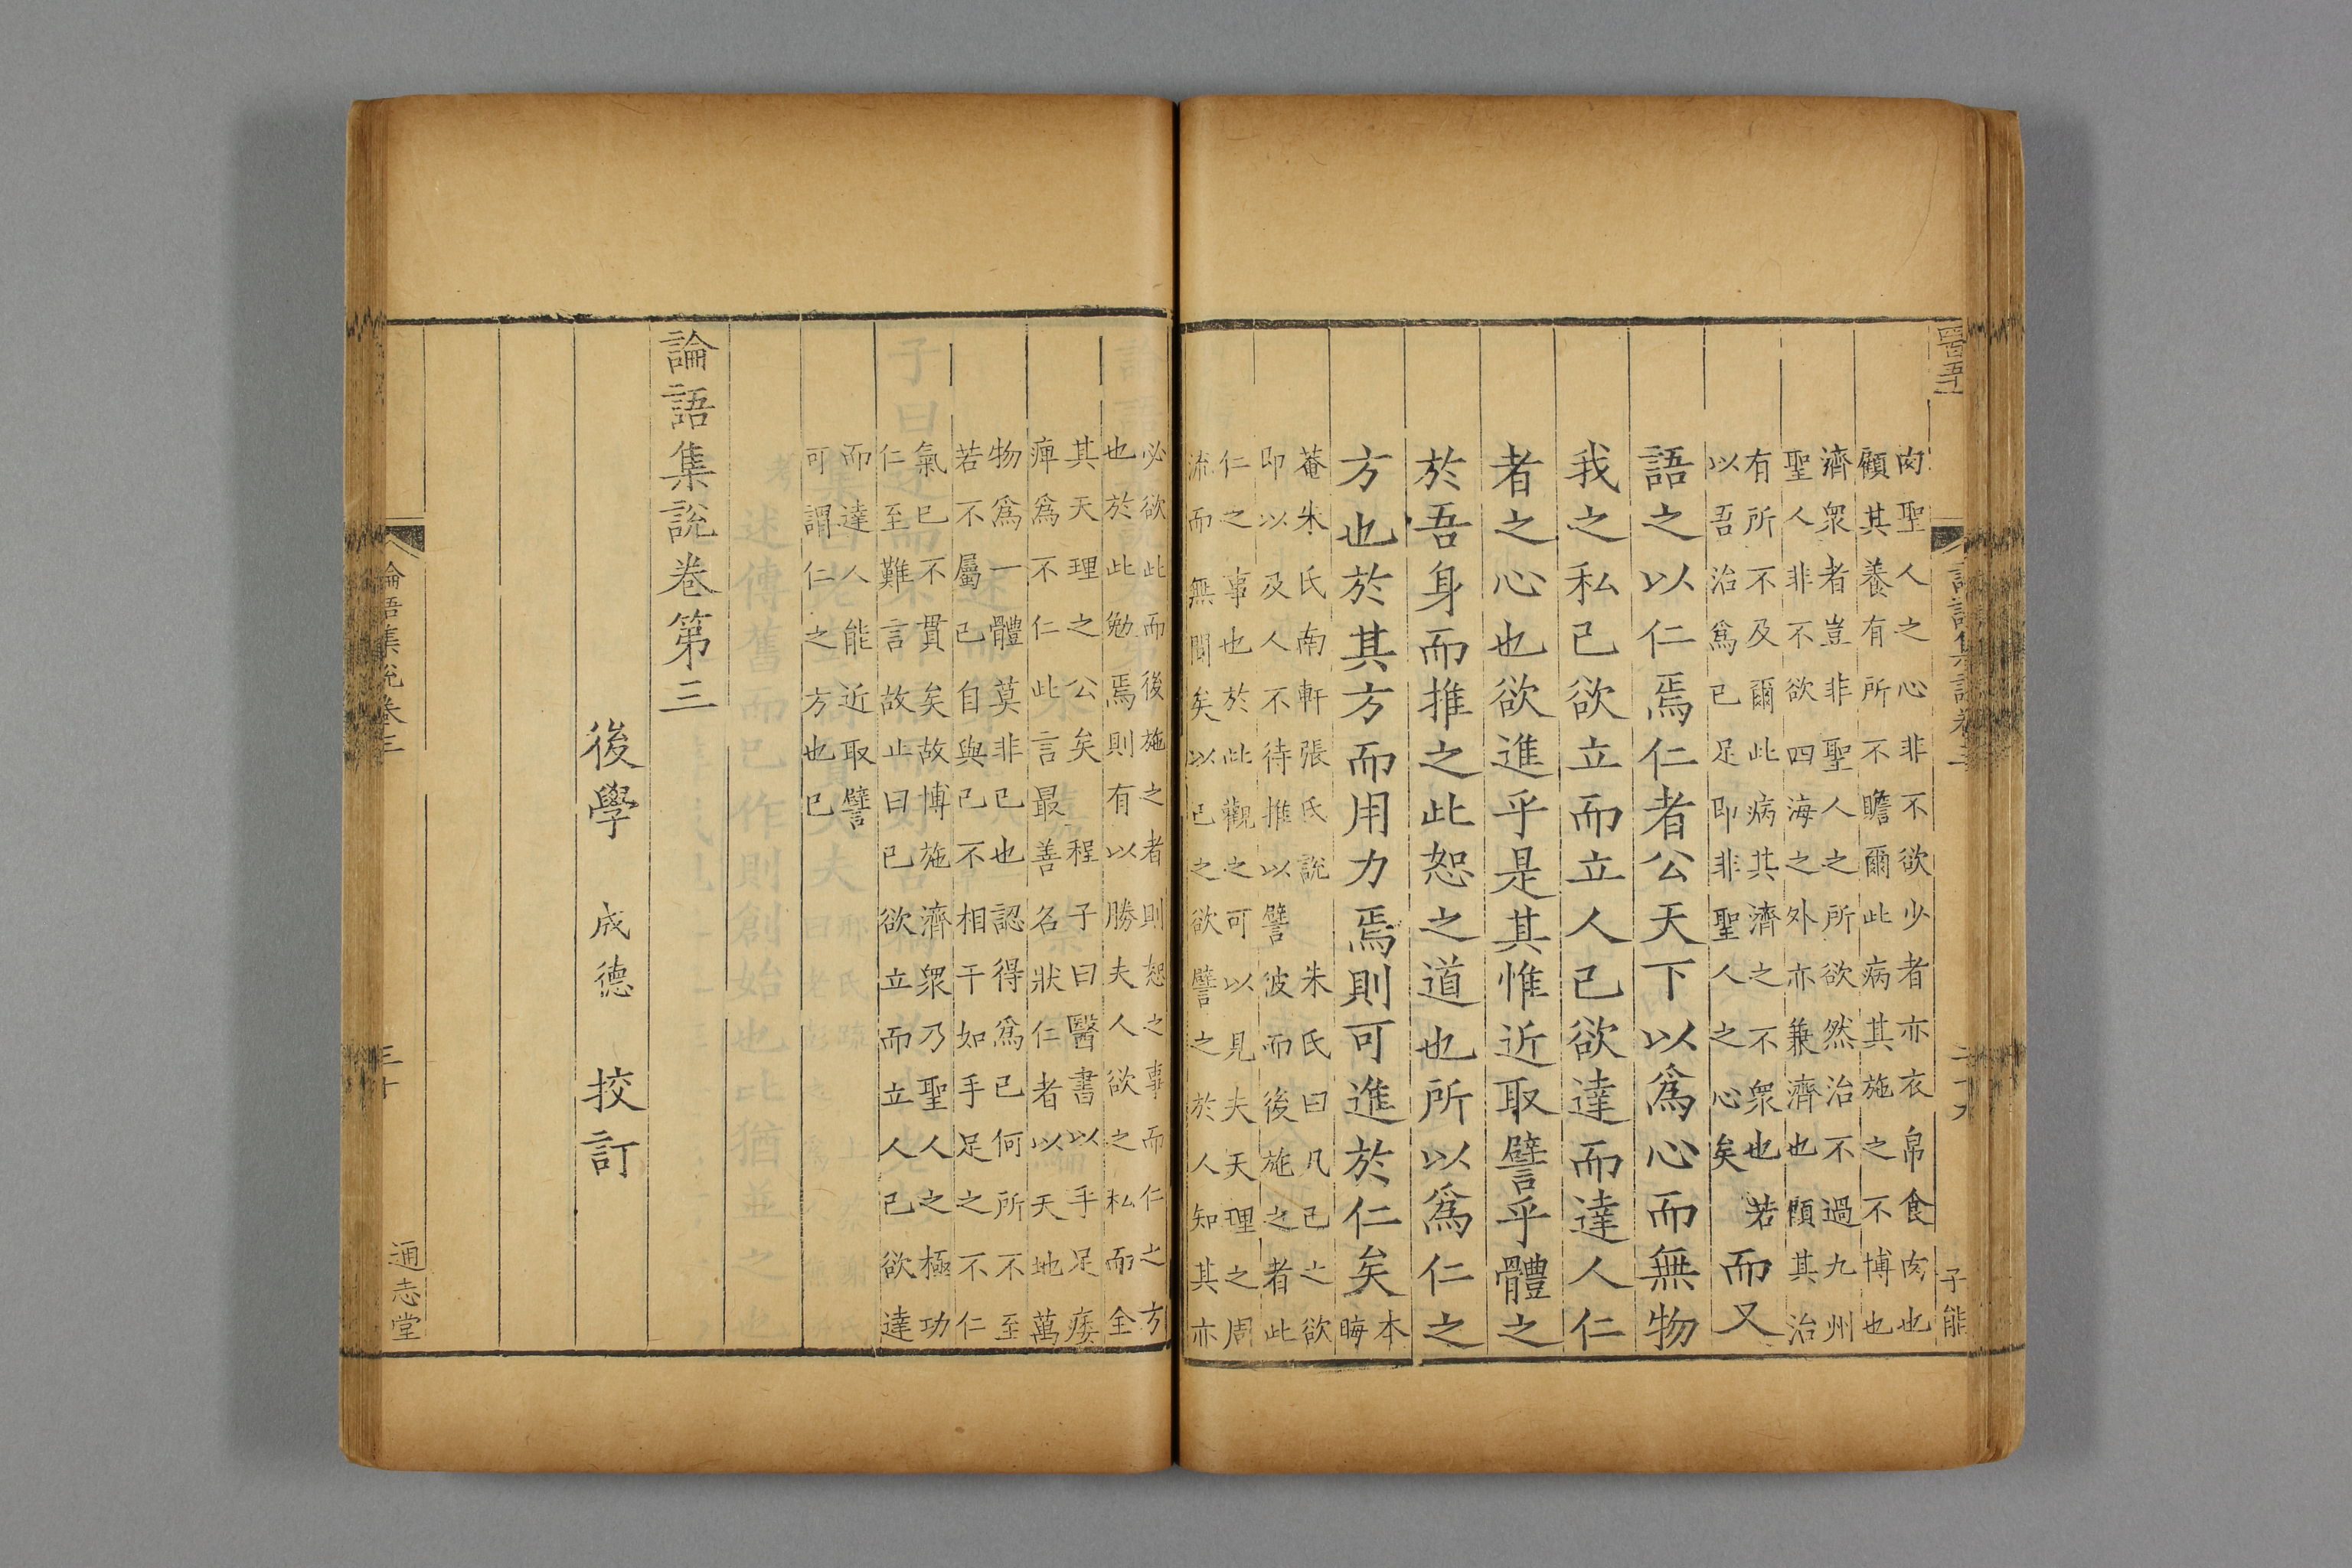 四百五十一
論語集説卷三
二十九
子能
肉聖人之心非不欲少者亦衣帛食肉也
顧其養有所不贍爾此病其施之不博也
濟衆者豈非聖人之所欲然治不過九州
聖人非不欲四海之外亦兼濟也顧其治
有所不及爾此病其濟之不衆也
以吾治爲已足即非聖人之心矣
若而又
語之以仁焉仁者公天下以爲心而無物
我之私己欲立而立人己欲達而達人仁
者之心也欲進乎是其惟近取譬乎體之
於吾身而推之此恕之道也所以爲仁之
方也於其方而用力焉則可進於仁矣本晦
菴朱氏南軒張氏說 朱氏曰凡己之欲
即以及人不待推以譬彼而後施之者此
仁之事也於此觀之可以見夫天理之周
流而無間矣以己之欲譬之於人知其亦
必欲此而後施之者則恕之事而仁之方
也於此勉焉則有以勝夫人欲之私而全
其天理之公矣 程子曰醫書以手足痿
痺爲不仁此言最善名狀仁者以天地萬
物爲一體莫非己也認得爲己何所不至
若不屬己自與己不相干如手足之不仁
氣已不貫矣故博施濟衆乃聖人之極功
仁至難言故止曰己欲立而立人己欲達
而達人能近取譬
可謂仁之方也已
論語集說卷第三
後學 成德 挍訂
論語集說卷三
三十
通志堂